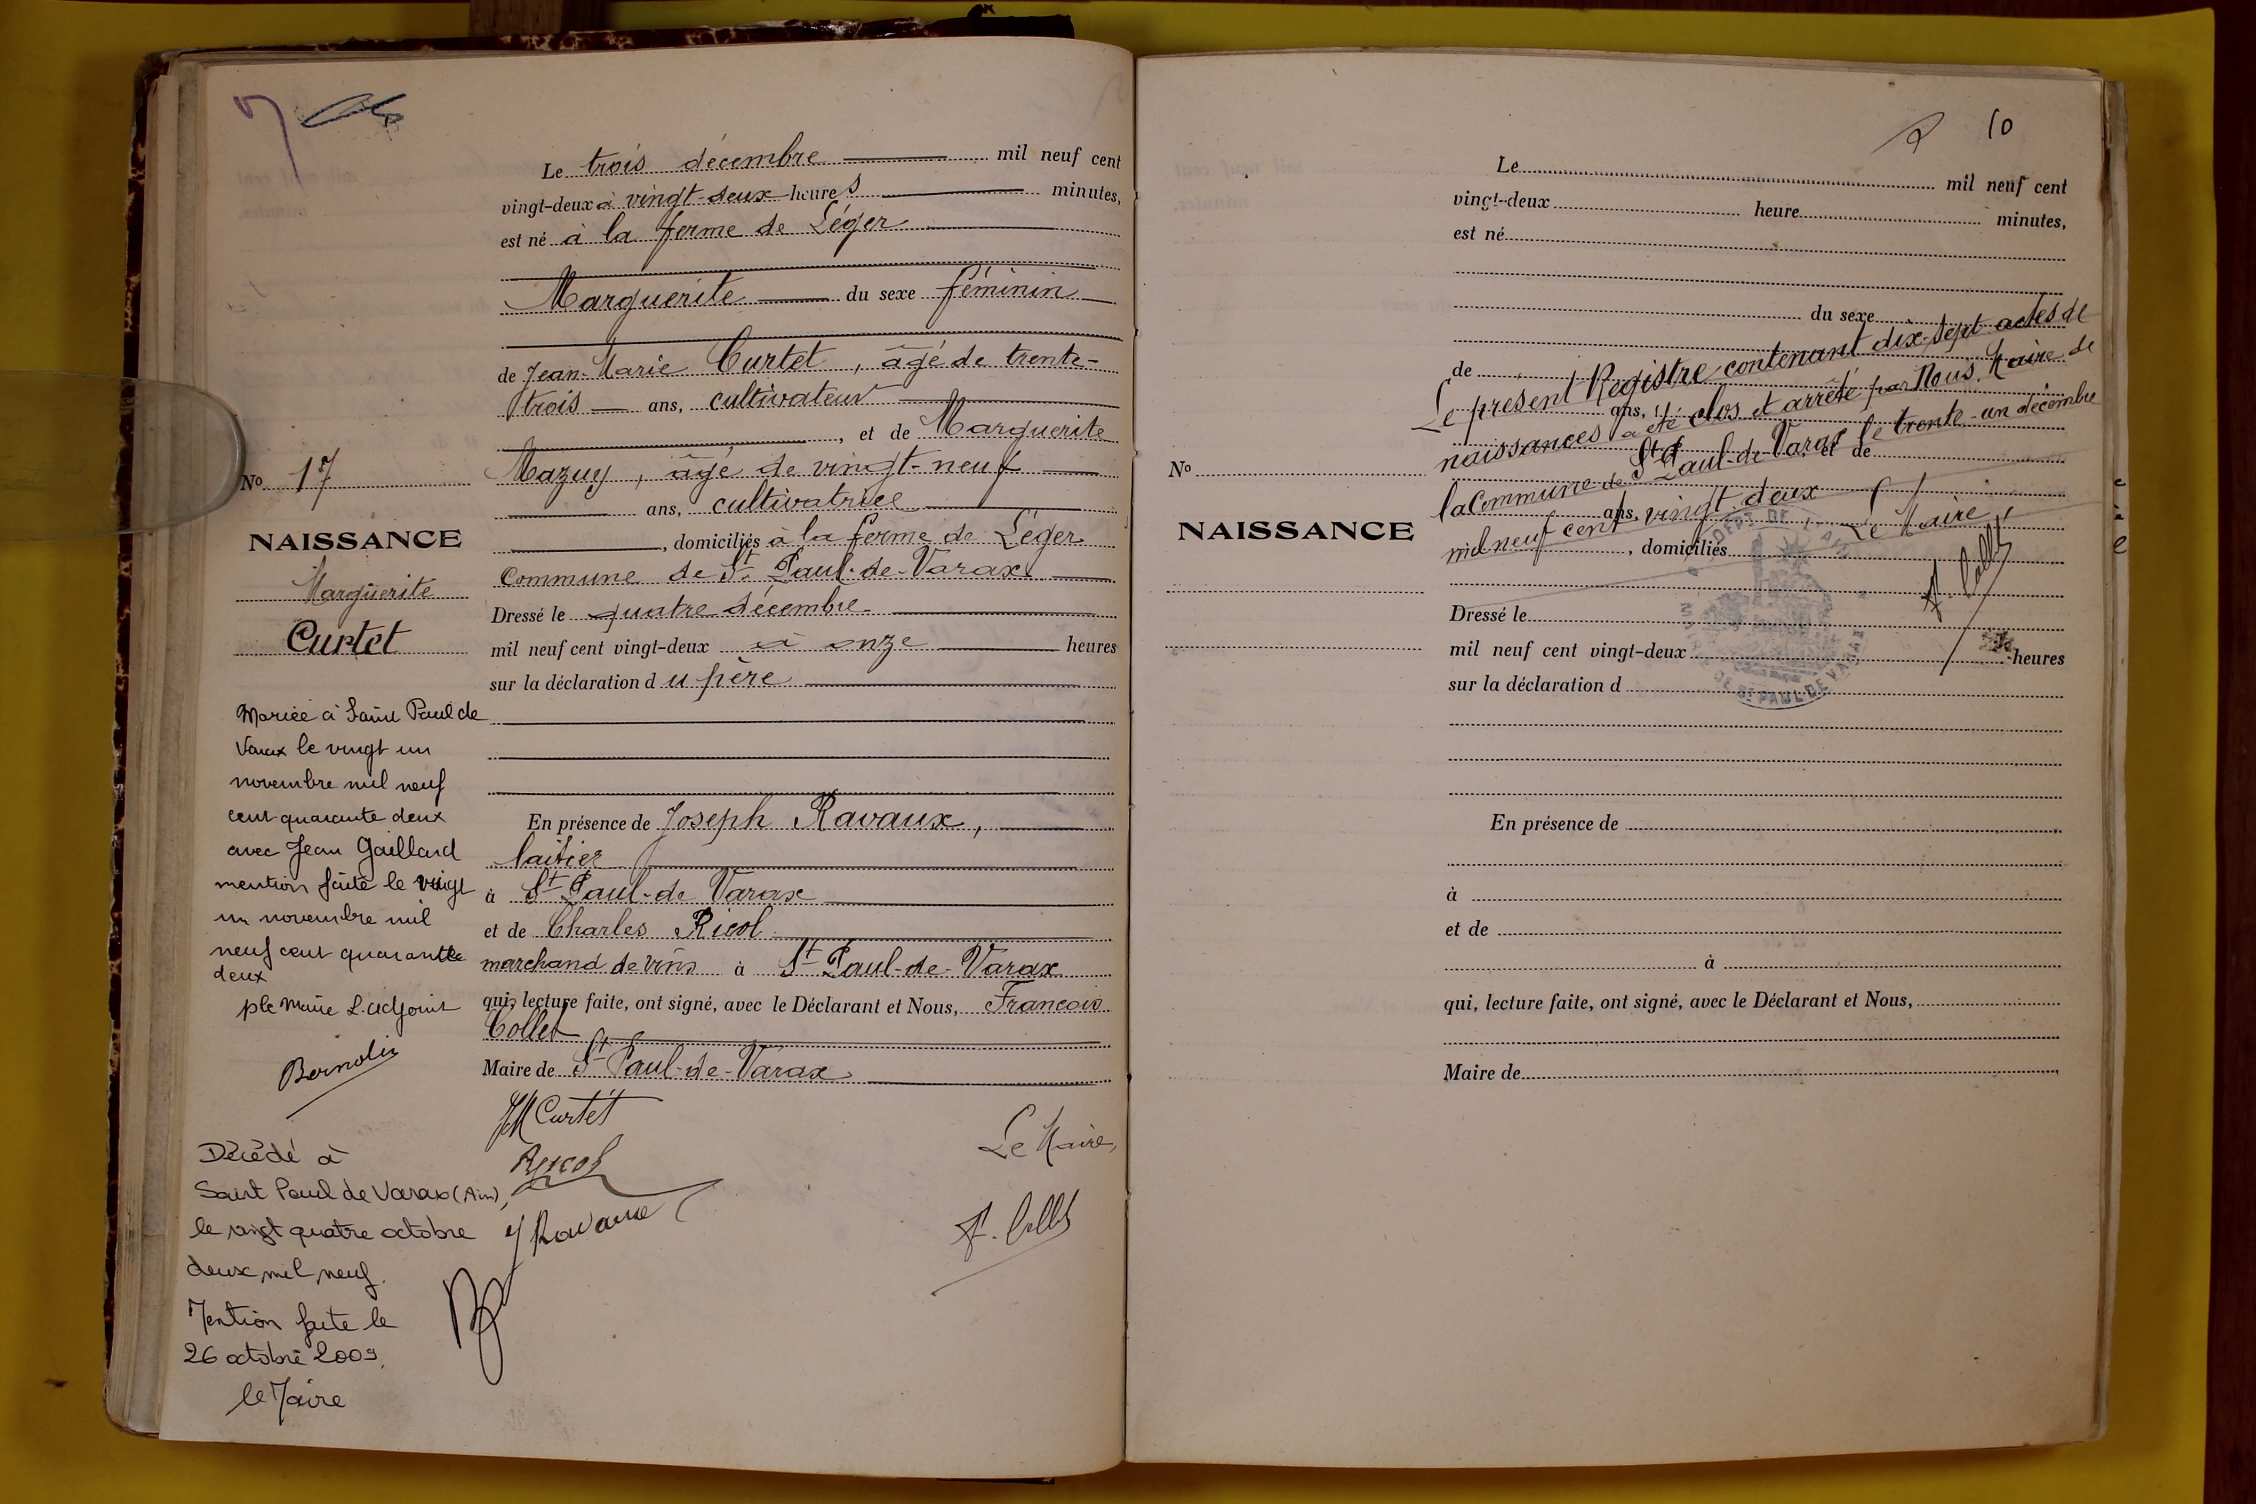 Le trois décembre mil neuf cent
vingt-deux à vingt-deux heures minutes,
est né à la ferme de Léger
Marguerite du sexe féminin
de Jean-Marie Curtet, âgé de trente-
trois ans, cultivateur
, et de Marguerite
Mazuy, âgé de vingt-neuf
ans, cultivatrice
, domiciliés à la ferme de Léger
Commune de St Paul-de-Varax
Dressé le quatre décembre
mil neuf cent vingt-deux à onze heures
sur la déclaration du père
En présence de Joseph Ravaux,
laitier
à St Paul-de Varax
et de Charles Ricol
marchand de vins à St Paul-de-Varax
qui, lecture faite, ont signé, avec le Déclarant et Nous, François
Collet
Maire de St Paul-de-Varax
JM Curtet
Ricol
J Ravaux
Le Maire,
F. Collet
No 17
NAISSANCE
Marguerite
Curtet
Mariée à Saint Paul de
Varax le vingt un
novembre mil neuf
cent quarante deux
avec Jean Gaillard
mention faite le vingt
un novembre mil
neuf cent quarante
deux
ple Maire L'adjoint
Décédé à
Saint Paul de Varax (Ain),
le vingt quatre octobre
deux mil neuf.
Mention faite le
26 octobre 2009.
le Maire
10
Le mil neuf cent
vingt-deux heure minutes,
est né
du sexe
de
ans,
et de
ans,
, domiciliés
Le présent Registre contenant dix-sept actes de
naissances a été clos et arrêté par Nous, Maire de
la Commune de St Paul-de-Varax le trente-un décembre
mil neuf cent vingt-deux
Le Maire,
F. Collet
No
NAISSANCE
DEPT DE L'AIN
DE ST PAUL-DE-VARAX
Dressé le
mil neuf cent vingt-deux heures
sur la déclaration d
En présence de
à
et de
à
qui, lecture faite, ont signé, avec le Déclarant et Nous,
Maire de